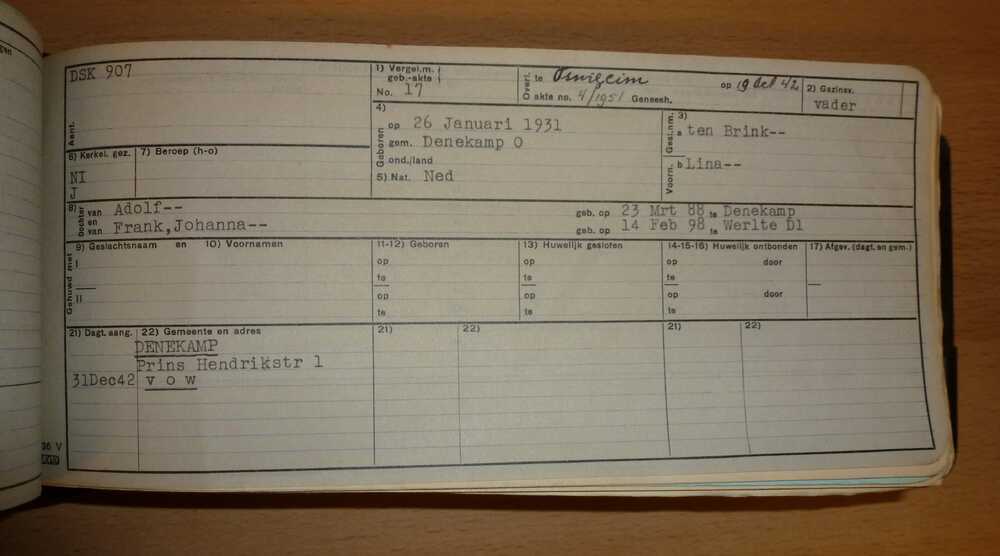 DSK 907
Aant.
1) Vergel.m. geb.-akte
No. 17
Overl. te Oswiecim op 19 Oct 42
akte no. 4/1951 Geneesh.
2) Gezinsv.
vader
4)
Geboren
op 26 Januari 1931
gem. Denekamp O
ond./land
5) Nat. Ned
3)
Gesl.nm.
a ten Brink--
Voorn.
b Lina--
6) Kerkel. gez.
NI
J
7) Beroep (h-o)
8)
Dochter van en van
Adolf-- geb. op 23 Mrt 88 te Denekamp
Frank,Johanna-- geb. op 14 Feb 98 te Werlte D1
Gehuwd met
9) Geslachtsnaam en 10) Voornamen
I
II
11-12) Geboren
op
te
op
te
13) Huwelijk gesloten
op
te
op
te
14-15-16) Huwelijk ontbonden
op door
te
op door
te
17) Afgev. (dagt. en gem.)
21) Dagt. aang. 22) Gemeente en adres 21) 22) 21) 22)
DENEKAMP
Prins Hendrikstr 1
31Dec42 V O W
36 V